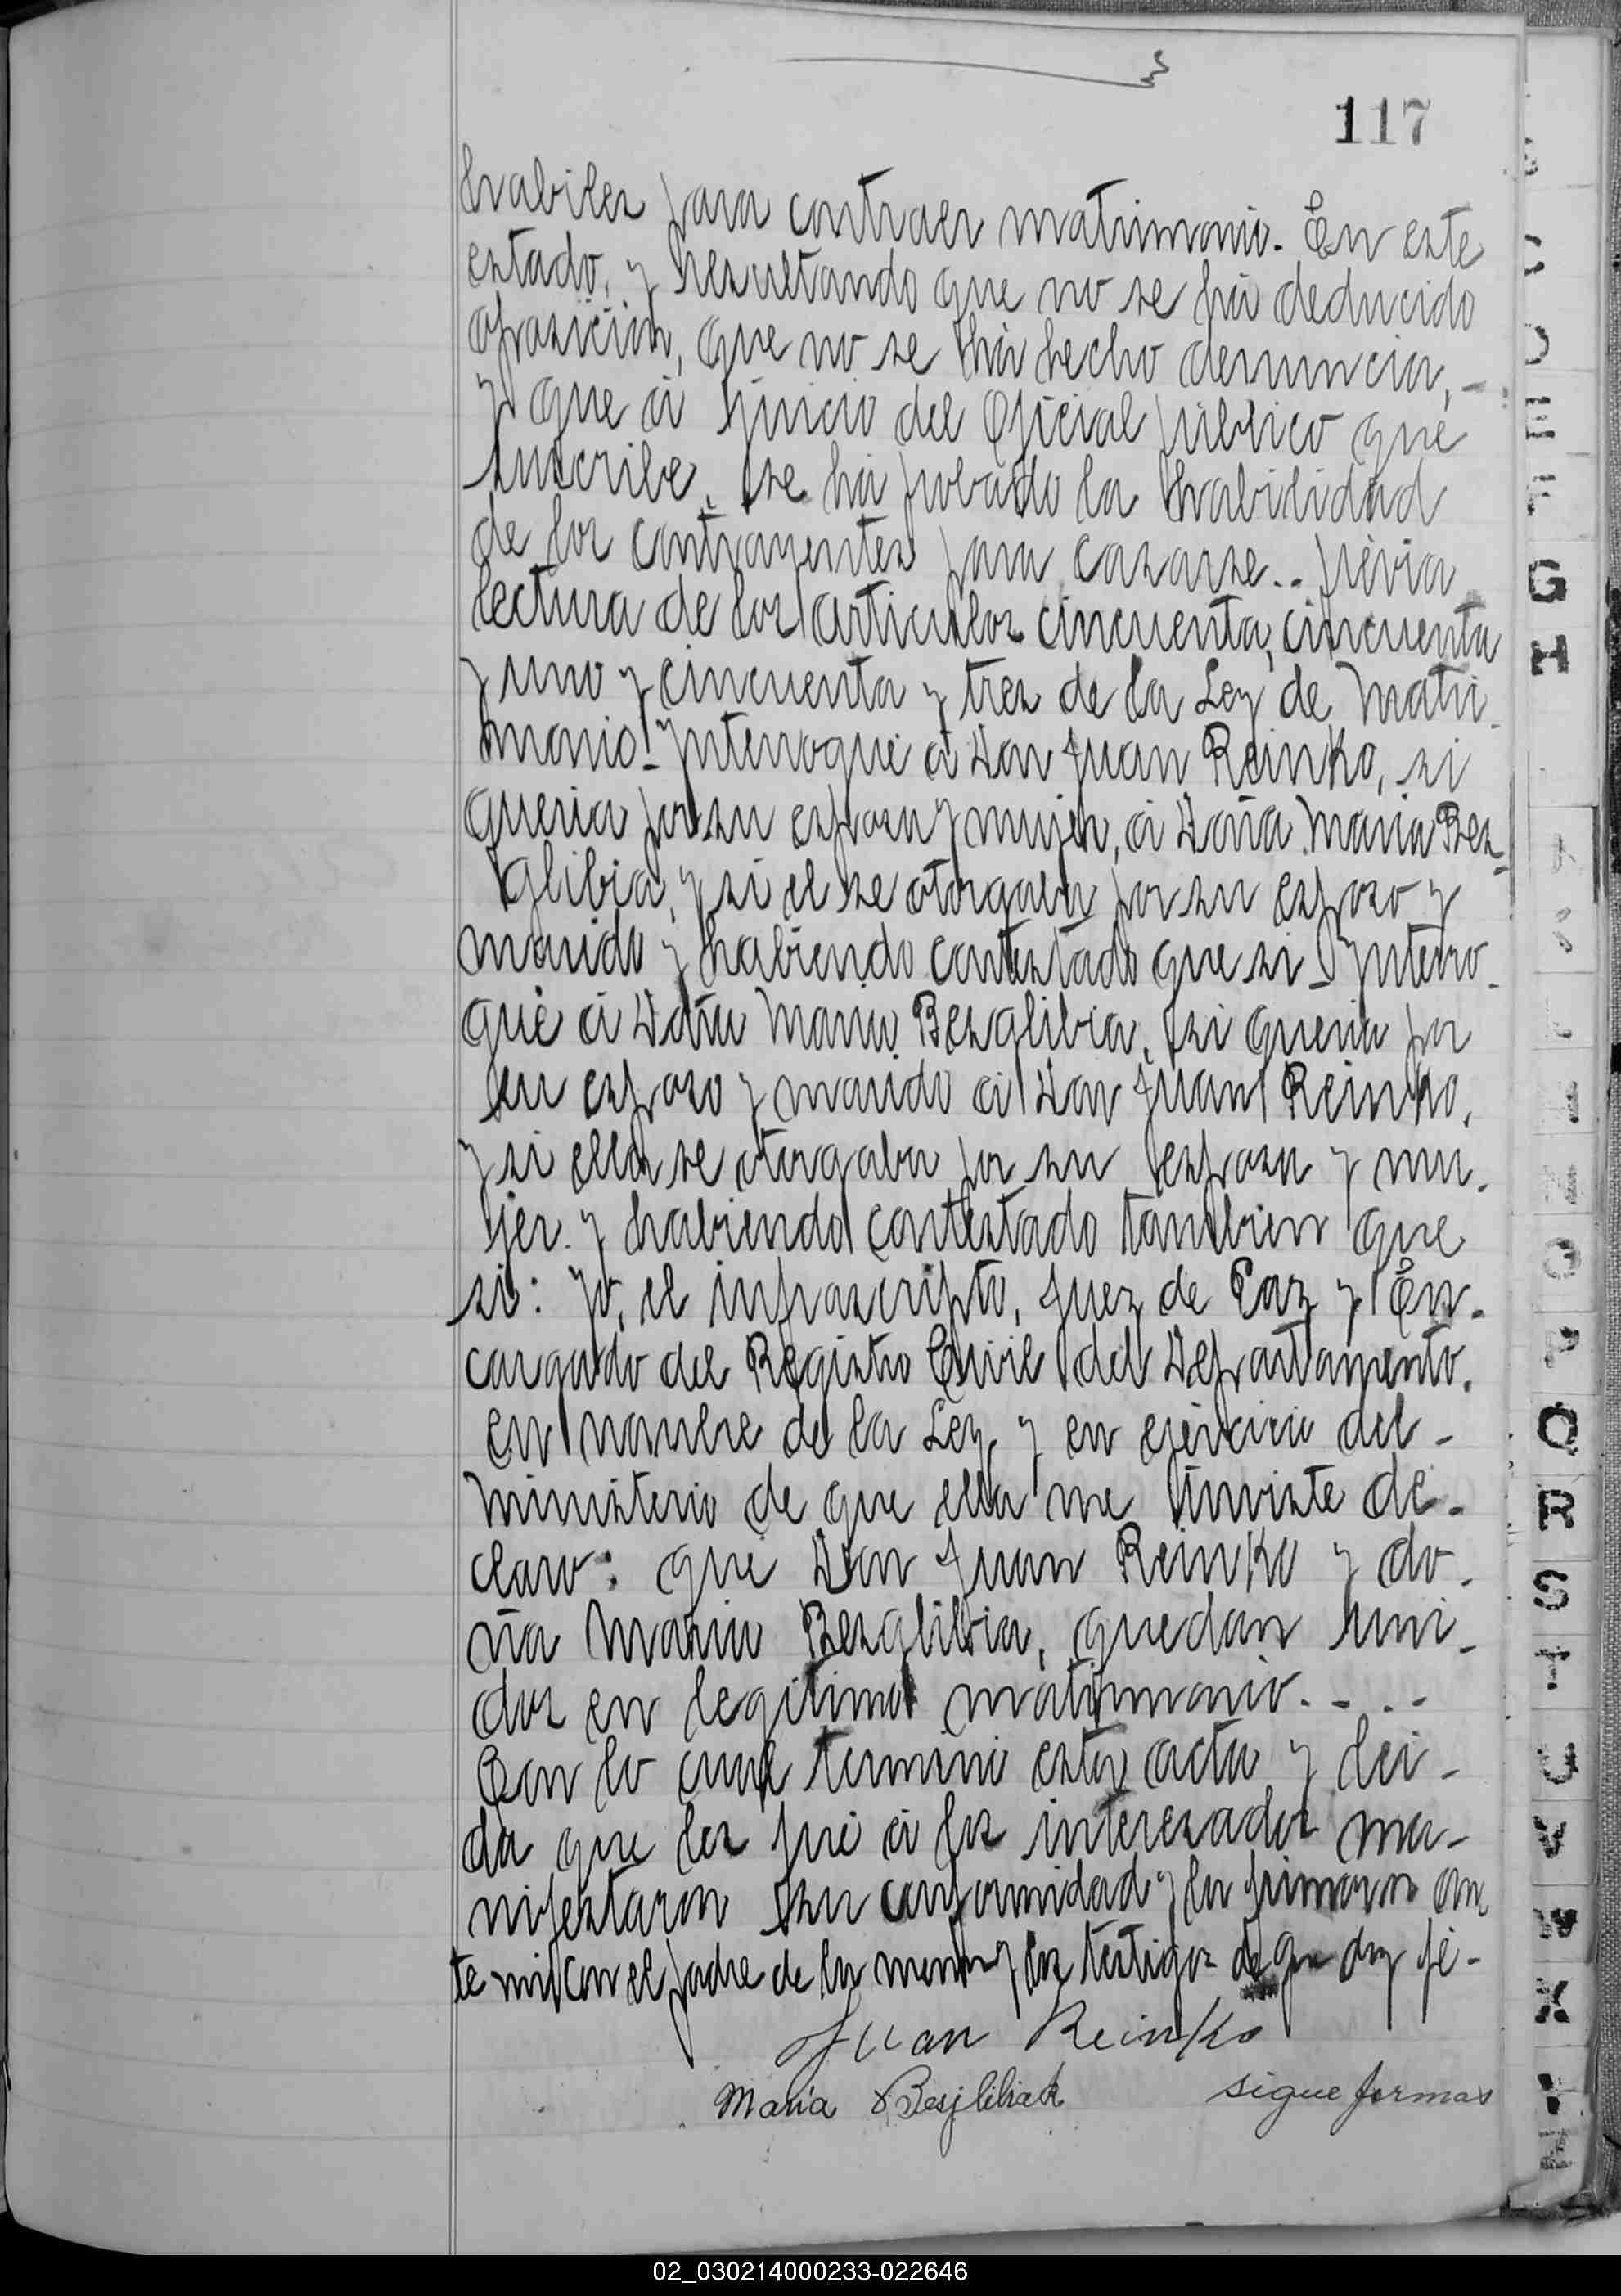 117
habiles para contraer matrimonio. En este
estado, y resultando que no se há deducido
oposición, que no se há hecho denuncia, -
y que á juicio del Oficial público que
suscribe, se há probado la habilidad
de los contrayentes para casarse.. prévia
lectura de los articulos cincuenta, cincuenta
y uno y cincuenta y tres de la Ley de Matri-
monio- Ynterroqué á Don Juan Reinko, si
queria por su esposa y mujer, á Doña Maria Bes-
glibia, y si el se otorgaba por su esposo y
marido y habiendo contestado que si - Ynterro-
gué á Doña Maria Besglibia, si queria por
su esposo y marido á Don Juan Reinko,
y si ella se otorgaba por su esposa y mu-
jer. y habiendo contestado tambien que
si: Yo, el infrascripto, Juez de Paz y En-
cargado del Registro Civil del Departamento.
en nombre de la Ley, y en ejercicio del -
ministerio de que ella me inviste de-
claro: que Don Juan Reinko y do-
ña Maria Besglibia, quedan uni-
dos en legitimo matrimonio. - . -
Con lo cual terminó esta acta y lei-
da que les fué á los interesados ma-
nifestaron su conformidad y la firmaron an
te mi con el padre de la menor y los testigos de que doy fé-
Juan Reinko
Maria Besjlibiak sigue formas
G
H
O
P
Q
R
S
T
U
V
W
X
02_030214000233-022646